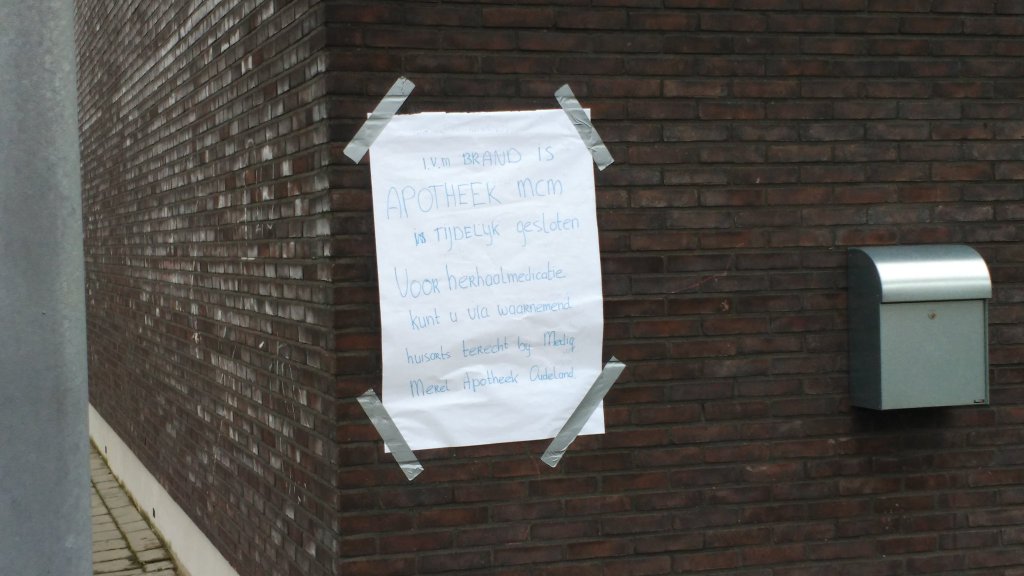 i.v.m BRAND is
APOTHEEK mcm
is TIJDELIJK gesloten
Voor herhaalmedicatie
kunt u via waarnemend
huisarts terecht bij Mediq
Merel Apotheek Oudeland